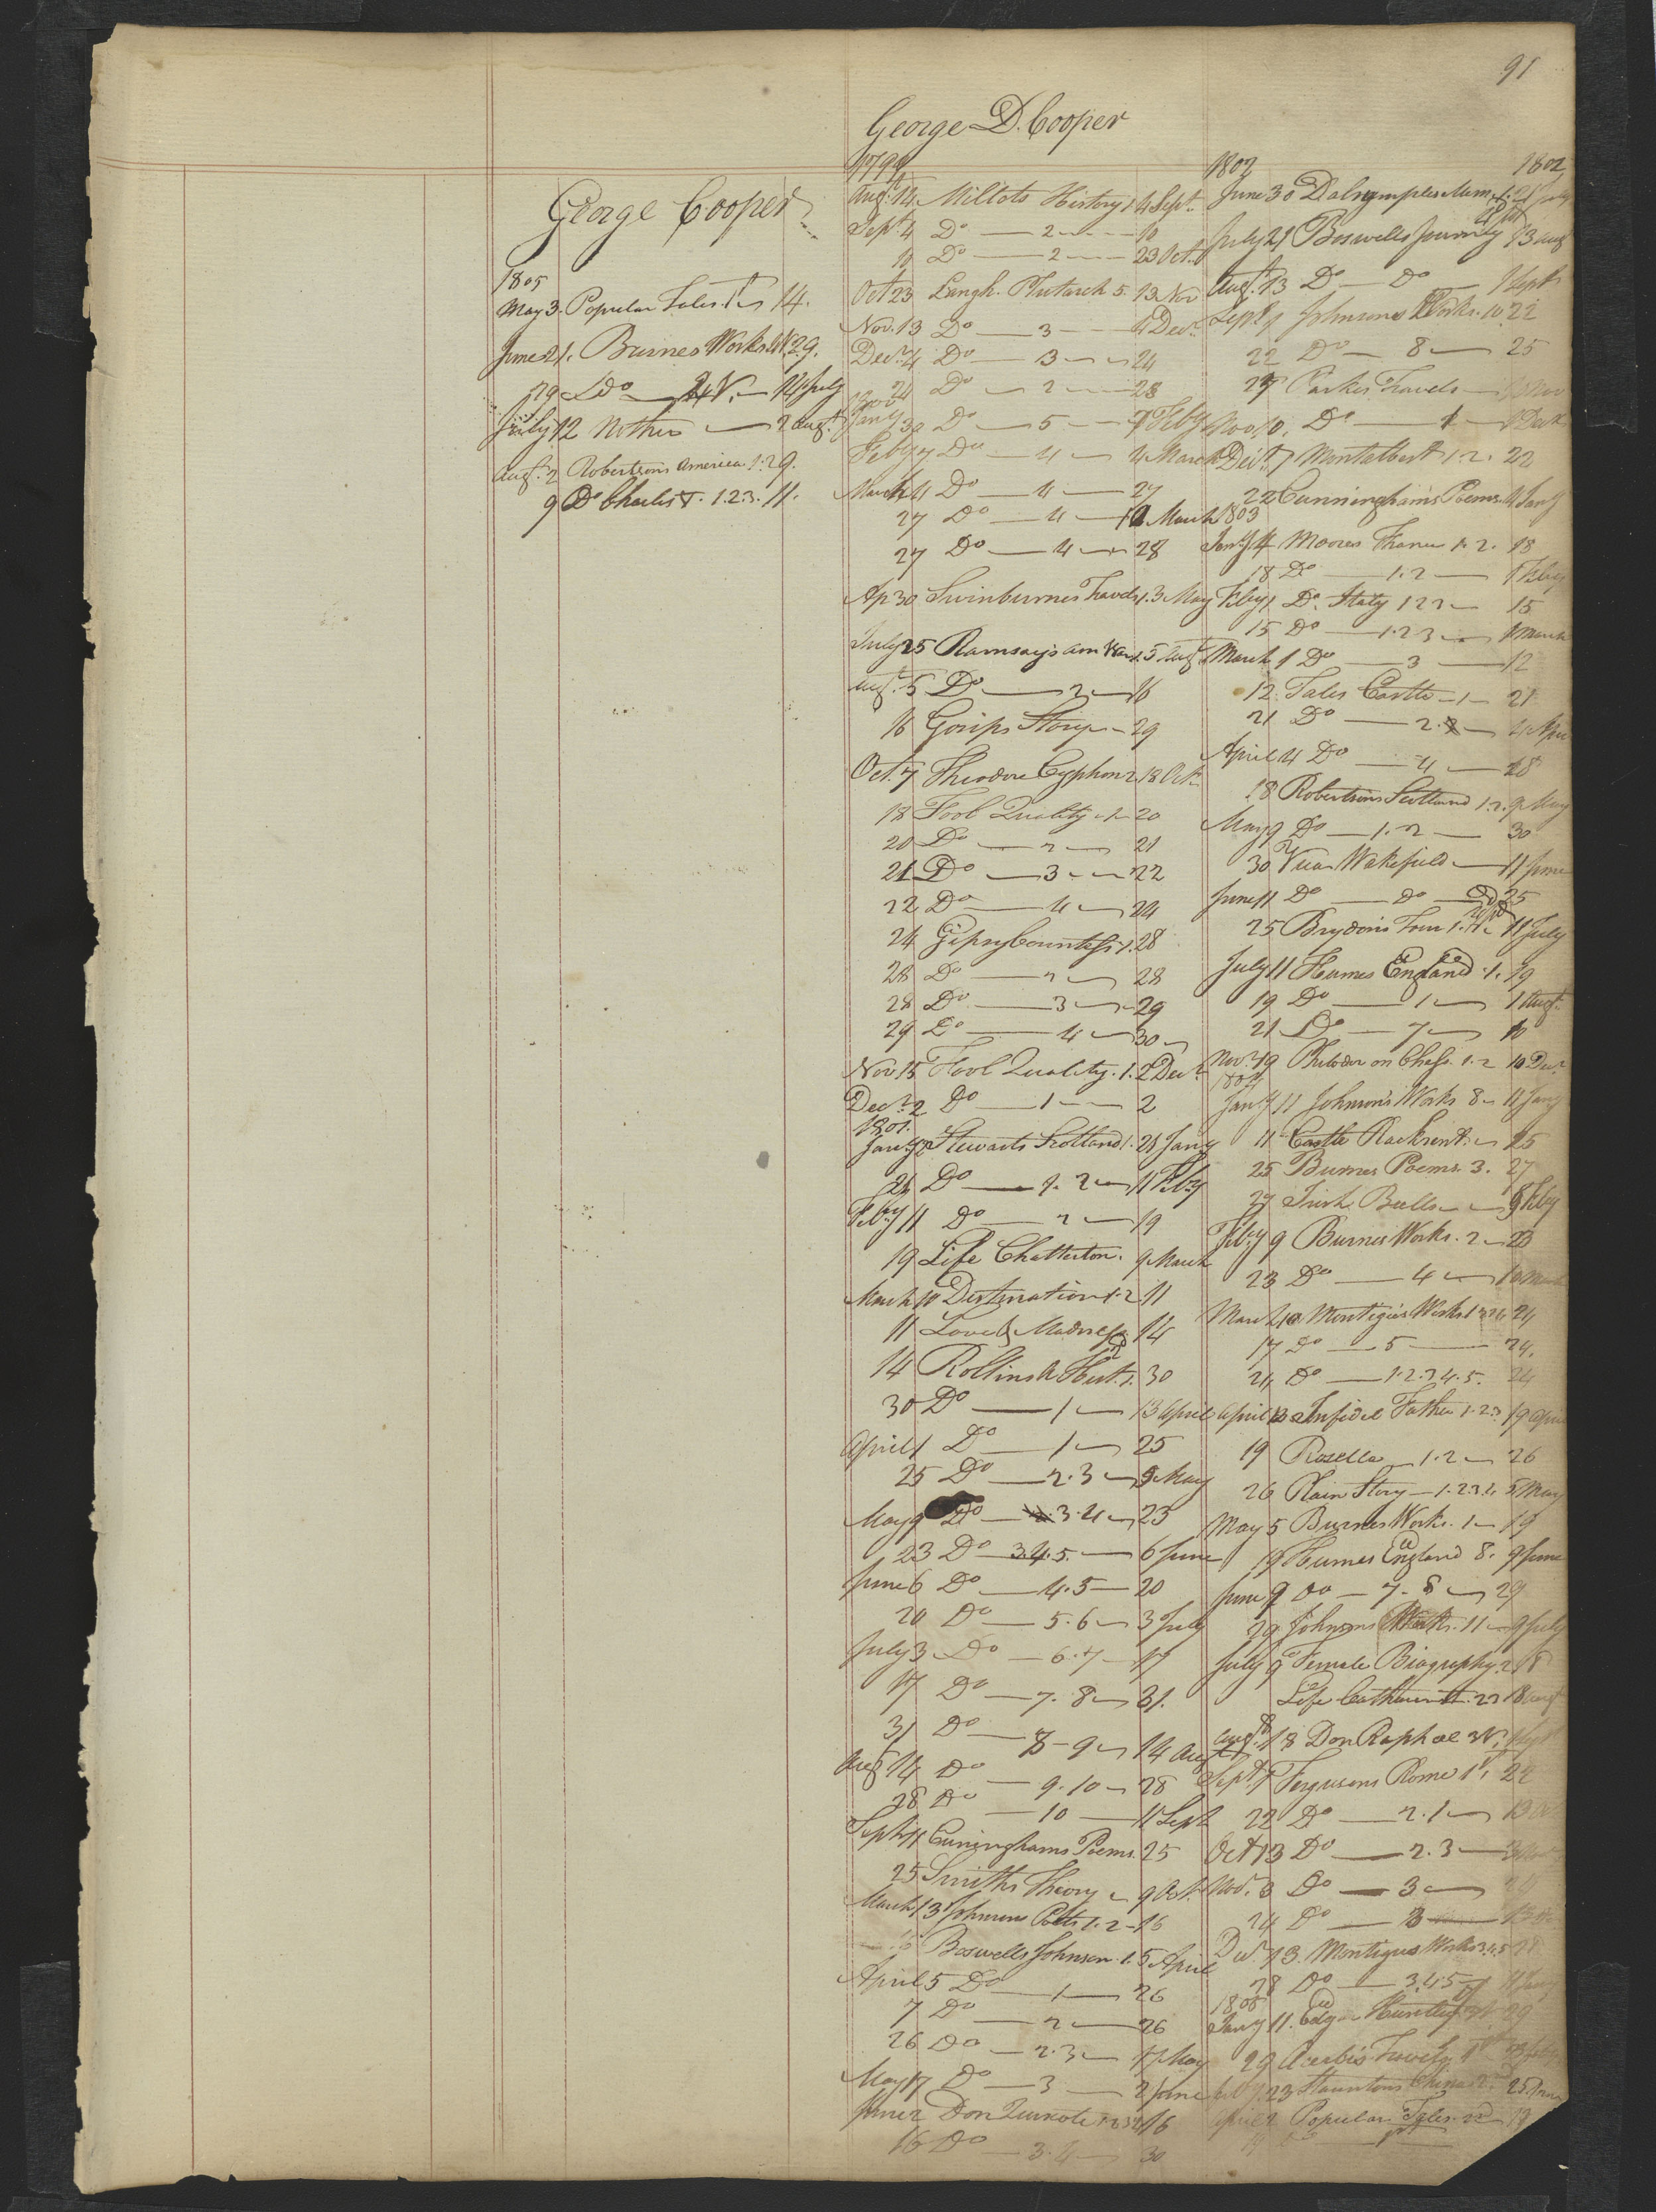 91
George Cooper
1805
May 3. Popular Tales 1st 14.
June 21. Burnes Works 29.
29 Do 14 July
July 12 Mother 2 Augt
Augt 2 Robertsons America 1. 29.
9 Do Charles V. 1.2.3. 11.
George D. Cooper
1799
Augt 14. Millots History 1 4 Sept
Sept 4 Do 2 10
10 Do 2 23 Oct
Oct 23 Langh. Plutarch 5. 13 Nov
Nov. 13 Do 3 4 Decr
Decr 4 Do 3 24
24 Do 2 28
1800
Jany 30 Do 5 7 Feby
Feby 7 Do 4 4 March
March 4 Do 4 27
27 Do 4 March
27 Do 4 28
Ap 30 Swinburnes Travels 1. 3 May
July 25 Ramsay's Am War 1. 5 Augt
Augt 5 Do 2 16
16 Gosips Story 29
Oct. 7 Theodore Cyphon 2. 18 Oct
18 Fool Quality 1 20
20 Do 2 21
21 Do 3 22
22 Do 4 24
24 Gipsy Countess 1. 28
28 Do 2 28
28 Do 3 29
29 Do 4 30
Nov 15 Fool Quality. 1. 2 Decr
Decr 2 Do 1 2
1801.
Jany Stewarts Scotland 1. 21 Jany
21 Do 1. 2 11 Feby
Feby 11 Do 2 19
19 Life Chatterton. 9 March
March 10 Destination 1. 2 11
11 Love & Madness 14
14 Rollins A Hist. 1. 30
30 Do 1 13 April
April 1 Do 1 25
25 Do 2. 3 9 May
May 9 Do 3. 4 23
23 Do 3.4.5. 6 June
June 6 Do 4. 5 20
20 Do 5. 6 3 July
July 3 Do 6. 7 17
17 Do 7. 8 31.
31 Do 8 - 9 14 Augt
Augt 14 Do 9. 10 28
28 Do 10 11 Sept
Sept 11 Cuninghams Poems. 25
25 Smiths Theory 9 Oct.
March 13 Johnsons Poets 1. 2 - 16
Boswells Johnson. 1. 5 April
April 5 Do 1 26
7 Do 2 26
26 Do 2. 3 17 May
May 17 Do 3 2 June
June 2 Don Quixote 1.2.3.4 16
16 Do 3. 4 30
1802 1802
June 30 Dalrymples Mem. 1. 21 July
July 21 Boswells Journey 13 Aug
Augt. 13 Do Do 1 Sept
Sept 1 Johnsons Works. 10 22
22 Do 8 25
29 Parkes Travels Nov
Nov. 10. Do 1 1 Decr
Decr 1 Montalbert 1. 2. 22
22 Cunningham's Poems. 4 Jany
1803
Jany 4 Moores France 1. 2. 18
18 Do 1. 2 1 Feby
Feby 1 Do. Italy 1 2 15
15 Do 1. 2 3 1 March
March 1 Do 3 12
12 Tales Castle 1 21
21 Do 2. 4 Apr
April 4 Do 4 18
18 Robertsons Scotland 1. 2. 9 May
May 9 Do 1. 2 30
30 Vicar Wakefield 11 June
June 11 Do Do 25
25 Brydon's Tour 1. 11 July
July 11 Humes England 1. 19
19 Do 1 1 Augt
21 Do 7 10
Novr 19 Philidor on Chess. 1. 2 10 Decr
1804
Jany 11 Johnson's Works 8 11 Jany
11 Castle Rackrent. 25
25 Burnes Poems. 3. 27
27 Irish Bulls 9 Feby
Feby 9 Burnes Works. 2 23
23 Do 4 10 March
March 10 Montigues Works 24
17 Do 5 24.
24 Do 1.2.3 4. 5. 24
April 13 Infidel Father 1. 2 3 19 April
19 Rosella 1. 2 26
26 Plain Story 1.2 3.4 5 May
May 5 Burnes Works. 1 19
19 Humes England 8. 9 June
June 9 Do 7. 8 29
29 Johnsons Works. 11 9 July
July 9 Female Biography. 2 18
Life Catharine II. 18 Augt
Augt. 18 Don Raphael Sept
Sept. 1 Fergusons Rome 1st. 22
22 Do 2. 1 13 Oct
Oct 13 Do 2. 3 3 Nov
Nov. 3 Do 3 24
24 Do 3 13
Decr 13. Montigues Works 3.4.5 28
28 Do 3.4 5 11 Jany
1805
Jany 11. Edgar Huntley 29
29 Acerbi's Travels 1st 23
Feby 23 Stauntons China
April 2 Popular Tales. 2d